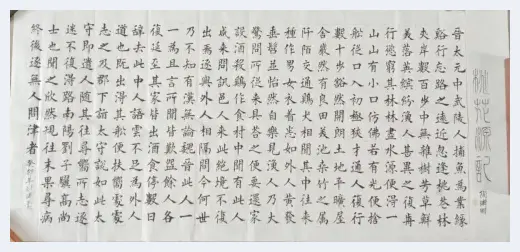 桃花源記
陶淵明
晉太元中武陵人捕魚為業緣
谿行忘路之遠近忽逢桃花林
夹岸數百步中無雜樹芳草鮮
美落英繽紛漁人甚異之復前
行欲窮其林林盡水源便得一
山山有小口仿佛若有光便捨
船從口入初極狭才通人復行
數十步豁然開朗土地平曠屋
舍儼然有良田美池桑竹之属
阡陌交通鷄犬相聞其中往来
種作男女衣着悉如外人黄髮
垂髫並怡然自樂見漁人乃大
驚問所從来具答之便要還家
設酒殺鷄作食村中聞有此人
咸来問訊邑人来此絶境不復
出焉遂與外人相隔問今何世
乃不知有漢無論魏晉此人一
一為具言所聞皆歎惋餘人各
復延至其家皆出酒食停數日
辭去此中人語云不足為外人
道也既出得其船便扶嚮處處
志之及郡下詣太守説如此太
守即遣人随其往尋嚮所志遂
迷不復得路南陽劉子驥高尚
士也聞之欣然規往未果尋病
終後遂無人問津者